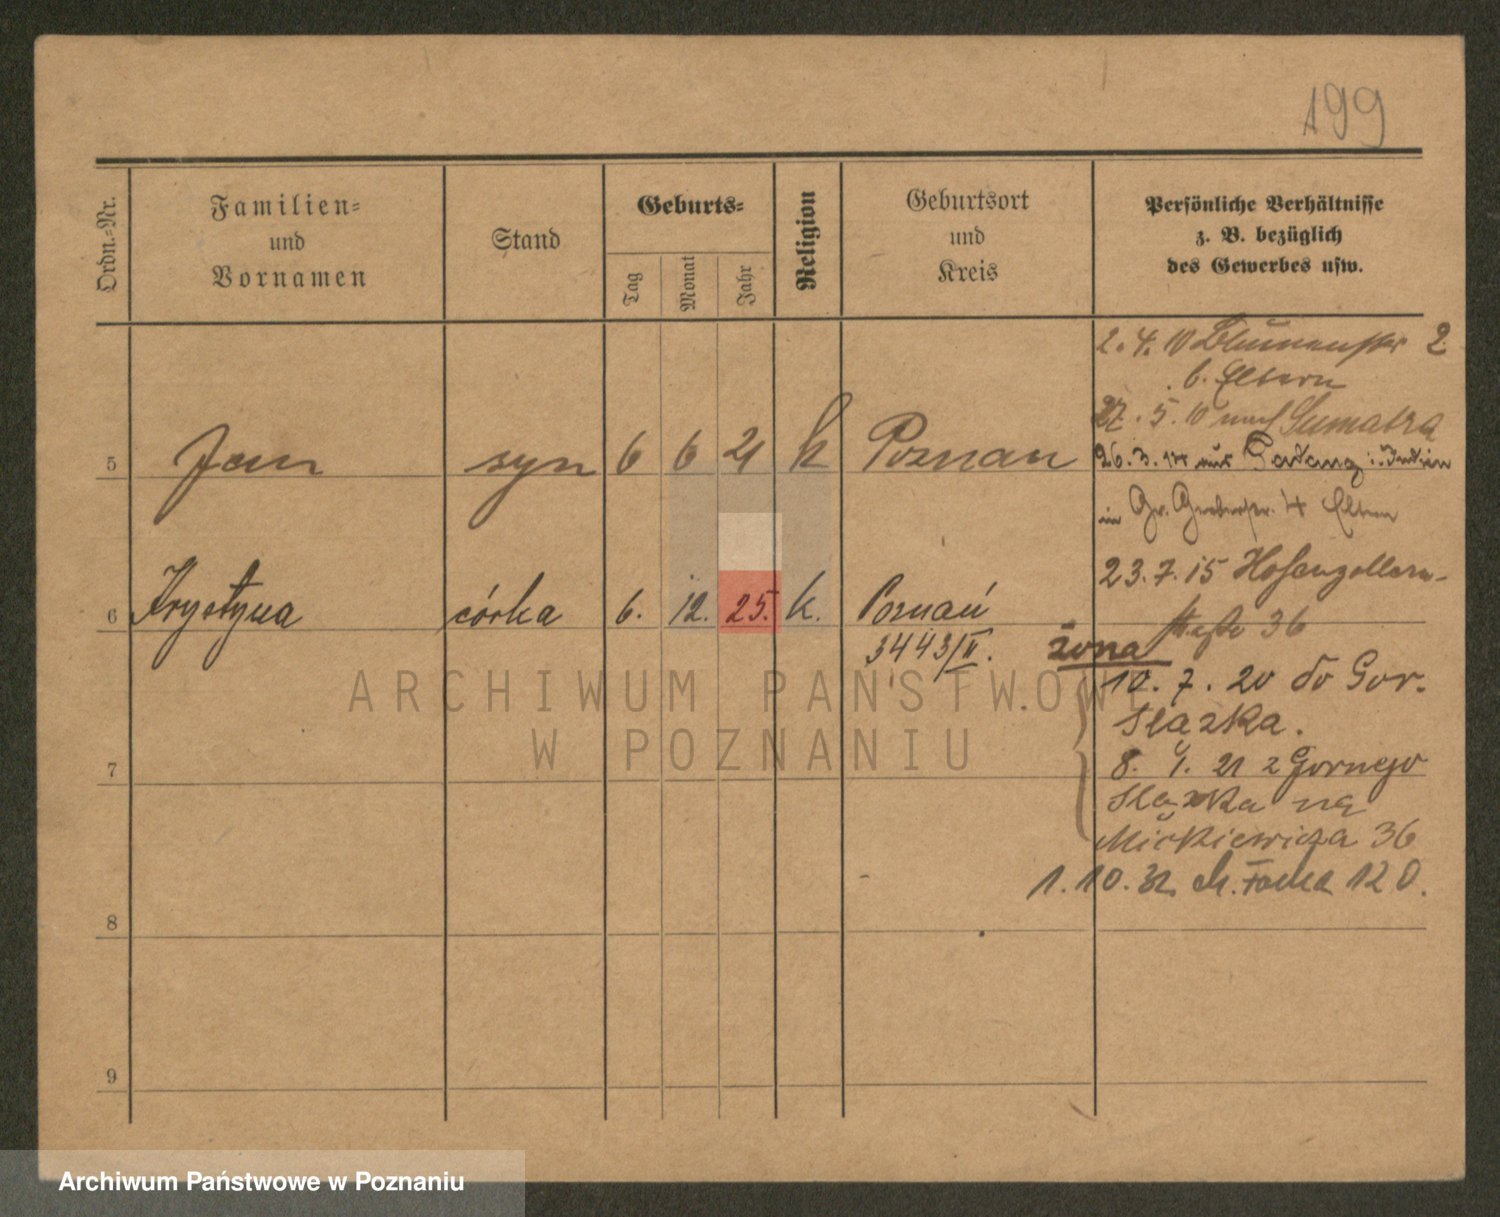 199
Ordn.-Nr.
Familien-
und
Vornamen
Stand
Geburts-
Tag
Monat
Jahr
Religion
Geburtsort
und
Kreis
Persönliche Verhältnisse
z. B. bezüglich
des Gewerbes usw.
2. 4. 10 Blumenstr 2
b. Eltern
27. 5. 10 nach Sumatra
5 Jan syn 6 6 21 k Poznan
26. 3. 14 aus Padang Indien
in Gr. Gerberstr. 4 Eltern
23. 7. 15 Hohenzollern-
6 Krystyna córka 6. 12. 25. k. Poznań
3443/II.
36
żona
10. 7. 20 do Gor.
Slązka.
7
8. 1. 21 z Gornego
Slązka na
Mickiewicza 36
1. 10. 32 M. Focha 120.
8
9
ARCHIWUM PAŃSTWOWE
W POZNANIU
Archiwum Państwowe w Poznaniu